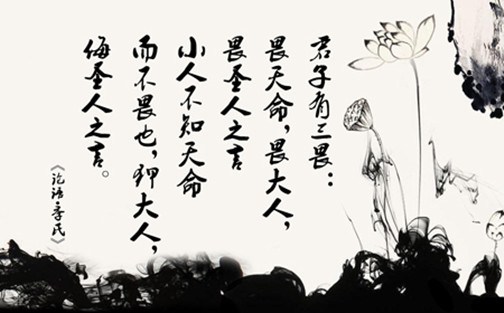 君子有三畏：
畏天命，畏大人，
畏圣人之言
小人不知天命
而不畏也，狎大人，
侮圣人之言。
《论语·季氏》